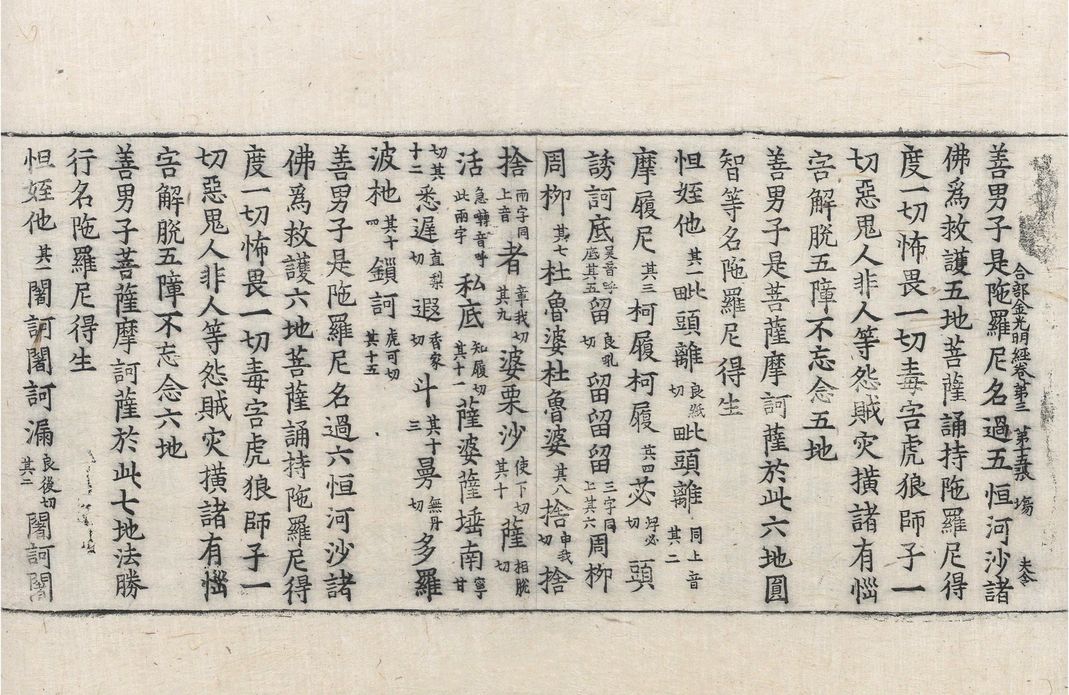 合部金光明經卷第三 第十五張 塲 夫令
善男子是陁羅尼名過五恒河沙諸
佛爲救護五地菩薩誦持陁羅尼得
度一切怖畏一切毒害虎狼師子一
切惡鬼人非人等怨賊灾横諸有惱
害解脫五障不忘念五地
善男子是菩薩摩訶薩於此六地圓
智等名陁羅尼得生
怛姪他其一毗頭離良紙切毗頭離同上音其二
摩履尼其三柯履柯履其四苾切必頭
誘訶底吴音呼底其五留良吼切留留留三字同上其六周柳
周柳其七杜魯婆杜魯婆其八捨申我切捨
捨兩字同上音者章我切其九婆栗沙使下切其十薩相脫切
活急轉音呼此兩字私底知履切其十一薩婆薩埵南寧甘
切其十二悉遲直梨切遐香家切斗其十三曼無丹切多羅
波杝其十四鎖訶虎可切其十五
善男子是陁羅尼名過六恒河沙諸
佛爲救護六地菩薩誦持陁羅尼得
度一切怖畏一切毒害虎狼師子一
切惡鬼人非人等怨賊灾横諸有惱
害解脫五障不忘念六地
善男子菩薩摩訶薩於此七地法勝
行名陁羅尼得生
怛姪他其一闍訶闍訶漏良後切其二闍訶闍